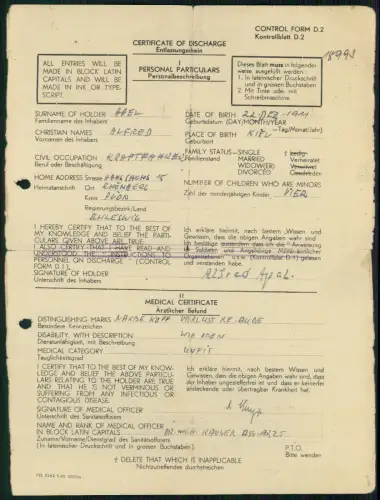 CONTROL FORM D.2
Kontrollblatt D.2
CERTIFICATE OF DISCHARGE
Entlassungsschein
ALL ENTRIES WILL BE
MADE IN BLOCK LATIN
CAPITALS AND WILL BE
MADE IN INK OR TYPE-
SCRIPT.
I
PERSONAL PARTICULARS
Personalbeschreibung
Dieses Blatt muss in folgender
weise ausgefüllt werden:
1. In lateinischer Druckschrift
und in grossen Buchstaben.
2. Mit Tinte oder mit
Schreibmaschine.
SURNAME OF HOLDER
Familienname des Inhabers
DATE OF BIRTH 22 DEZ 1911
Geburtsdatum (DAY/MONTH/YEAR
—Tag/Monat/Jahr)
CHRISTIAN NAMES ALFRED
Vornamen des Inhabers
PLACE OF BIRTH KIEL
Geburtsort
CIVIL OCCUPATION KRAFTFAHRER
Beruf oder Beschäftigung
FAMILY STATUS— SINGLE † Ledig
Familienstand MARRIED Verheiratet
WIDOW(ER) Verwitwet
DIVORCED Geschieden
HOME ADDRESS Strasse 15
Heimatanschrift Ort
Kreis PLÖN
Regierungsbezirk/Land
SCHLESWIG
NUMBER OF CHILDREN WHO ARE MINORS
Zahl der minderjährigen Kinder
I HEREBY CERTIFY THAT TO THE BEST OF
MY KNOWLEDGE AND BELIEF THE PARTI-
CULARS GIVEN ABOVE ARE TRUE.
I ALSO CERTIFY THAT I HAVE READ AND
UNDERSTOOD THE "INSTRUCTIONS TO
PERSONNEL ON DISCHARGE" (CONTROL
FORM D.1).
SIGNATURE OF HOLDER
Unterschrift des Inhabers
Ich erkläre hiermit, nach bestem Wissen und
Gewissen, dass die obigen Angaben wahr sind.
Ich bestätige ausserdem dass ich die "Anweisung
Soldaten und Angehörige Militär-ähnlicher
Organisationen" u.s.w. (Kontrollblatt D.1) gelesen
und verstanden habe.
Alfred
II
MEDICAL CERTIFICATE
Ärztlicher Befund
DISTINGUISHING MARKS
Besondere Kennzeichen
DISABILITY, WITH DESCRIPTION
Dienstunfähigkeit, mit Beschreibung
MEDICAL CATEGORY
Tauglichkeitsgrad
I CERTIFY THAT TO THE BEST OF MY KNOW-
LEDGE AND BELIEF THE ABOVE PARTICU-
LARS RELATING TO THE HOLDER ARE TRUE
AND THAT HE IS NOT VERMINOUS OR
SUFFERING FROM ANY INFECTIOUS OR
CONTAGIOUS DISEASE.
Ich erkläre hiermit, nach bestem Wissen und
Gewissen, dass die obigen Angaben wahr sind, dass
der Inhaber ungezieferfrei ist und dass er keinerlei
ansteckende oder übertragbare Krankheit hat.
SIGNATURE OF MEDICAL OFFICER
Unterschrift des Sanitätsoffiziers
NAME AND RANK OF MEDICAL OFFICER
IN BLOCK LATIN CAPITALS
Zuname/Vorname/Dienstgrad des Sanitätsoffiziers
(In lateinischer Druckschrift und in grossen Buchstaben)
P.T.O.
Bitte wenden
† DELETE THAT WHICH IS INAPPLICABLE
Nichtzutreffendes durchstreichen